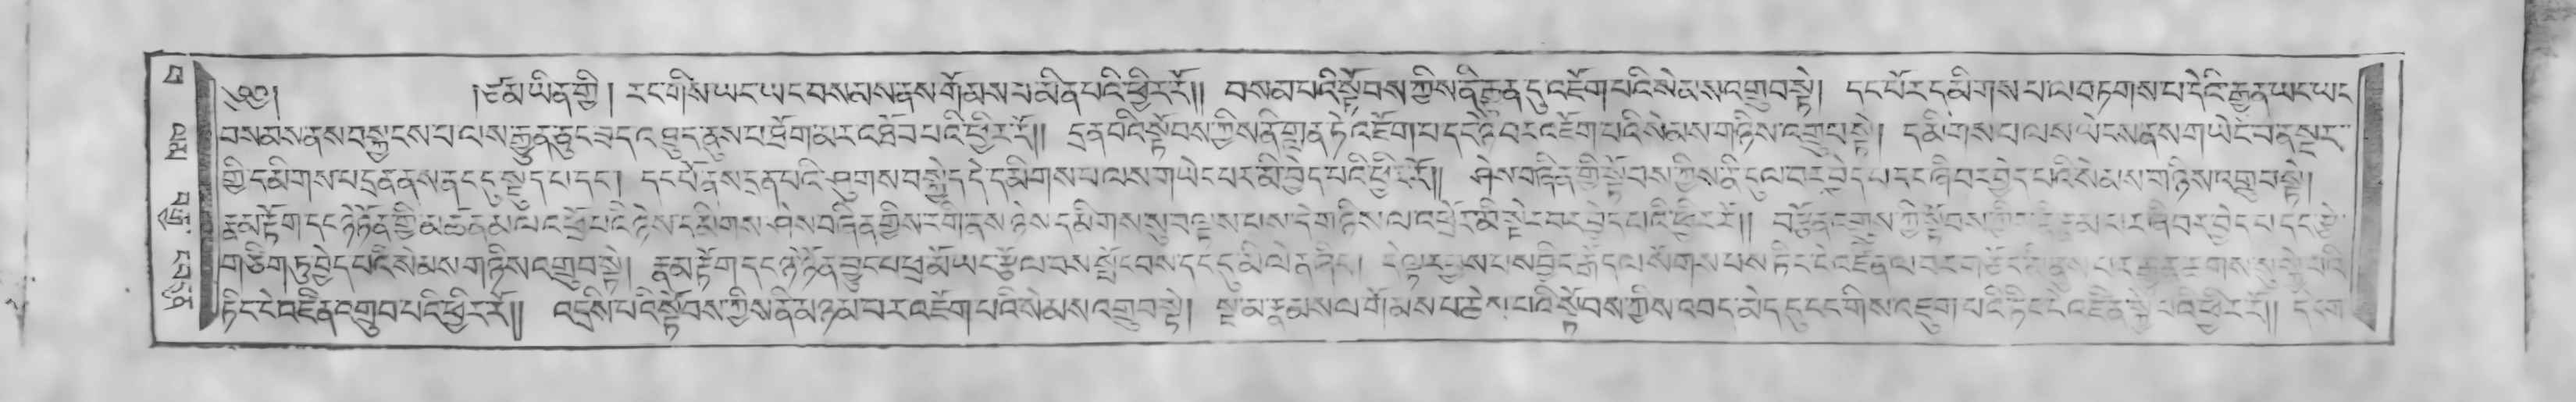 ༄༅། །ཙམ་ཡིན་གྱི། རང་གིས་ཡང་ཡང་བསམས་ནས་གོམས་པ་མིན་པའི་ཕྱིར་རོ།། བསམ་པའི་སྟོབས་ཀྱིས་ནི་རྒྱུན་དུ་འཇོག་པའི་སེམས་འགྲུབ་སྟེ། དང་པོར་དམིགས་པ་ལ་བཏགས་པ་དེའི་རྒྱུན་ཡང་ཡང་
བསམས་ནས་བསྐྱངས་པ་ལས་རྒྱུན་ཆུང་ཟད་འཐུད་ནུས་པ་ཐོག་མར་འཐོབ་པའི་ཕྱིར་རོ།། དྲན་པའི་སྟོབས་ཀྱིས་ནི་གླན་ཏེ་འཇོག་པ་དང་ཉེ་བར་འཇོག་པའི་སེམས་གཉིས་འགྲུབ་སྟེ། དམིགས་པ་ལས་ཡེངས་ནས་གཡེང་བ་ན་སྔར་
གྱི་དམིགས་པ་དྲན་ནས་ནང་དུ་སྡུད་པ་དང་། དང་པོ་ནས་དྲན་པའི་ཤུགས་བསྐྱེད་དེ་དམིགས་པ་ལས་གཡེང་པར་མི་བྱེད་པའི་ཕྱིར་རོ།། ཤེས་བཞིན་གྱི་སྟོབས་ཀྱིས་ནི་དུལ་བར་བྱེད་པ་དང་ཞི་བར་བྱེད་པའི་སེམས་གཉིས་འགྲུབ་སྟེ།
རྣམ་རྟོག་དང་ཉེ་ཉོན་གྱི་མཚན་མ་ལ་འཕྲོ་བའི་ཉེས་དམིགས་ཤེས་བཞིན་གྱིས་རིག་ནས་ཉེས་དམིགས་སུ་བལྟས་པས་དེ་གཉིས་ལ་འཕྲོར་མི་སྟེར་བར་བྱེད་པའི་ཕྱིར་རོ།། བརྩོན་འགྲུས་ཀྱི་སྟོབས་ཀྱིས་ནི་རྣམ་པར་ཞི་བར་བྱེད་པ་དང་རྩེ་
གཅིག་ཏུ་བྱེད་པའི་སེམས་གཉིས་འགྲུབ་སྟེ། རྣམ་རྟོག་དང་ཉེ་ཉོན་བྱུང་པ་ཕྲ་མོ་ཡང་རྩོལ་བས་སྤོང་བས་དང་དུ་མི་ལེན་ཞིང་། དེ་ལྟར་བྱས་པས་བྱིང་རྒོད་ལ་སོགས་པས་ཏིང་ངེ་འཛིན་ལ་བར་གཅོད་
ཏིང་ངེ་འཛིན་འགྲུབ་པའི་ཕྱིར་རོ།། འདྲིས་པའི་སྟོབས་ཀྱིས་ནི་མཉམ་པར་འཇོག་པའི་སེམས་འགྲུབ་སྟེ། སྔ་མ་རྣམས་ལ་གོམས་པ་ཆེས་པའི་སྟོབས་ཀྱིས་འབད་མེད་དུ་ངང་གིས་འཇུག་པའི་ཏིང་ངེ་འཛིན་སྐྱེ་བའི་ཕྱིར་རོ།།